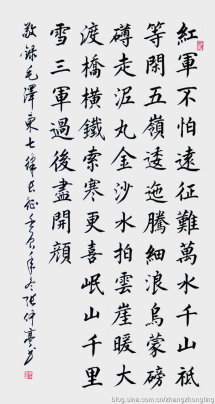 紅軍不怕遠征難萬水千山祗
等閑五嶺逶迤騰細浪烏蒙磅
礴走泥丸金沙水拍雲崖暖大
渡橋橫鐵索寒更喜岷山千里
雪三軍過後盡開顔
敬録毛澤東七律長征壬辰年冬張仲亭書
blog.sina.com.cn/zhangzhongting